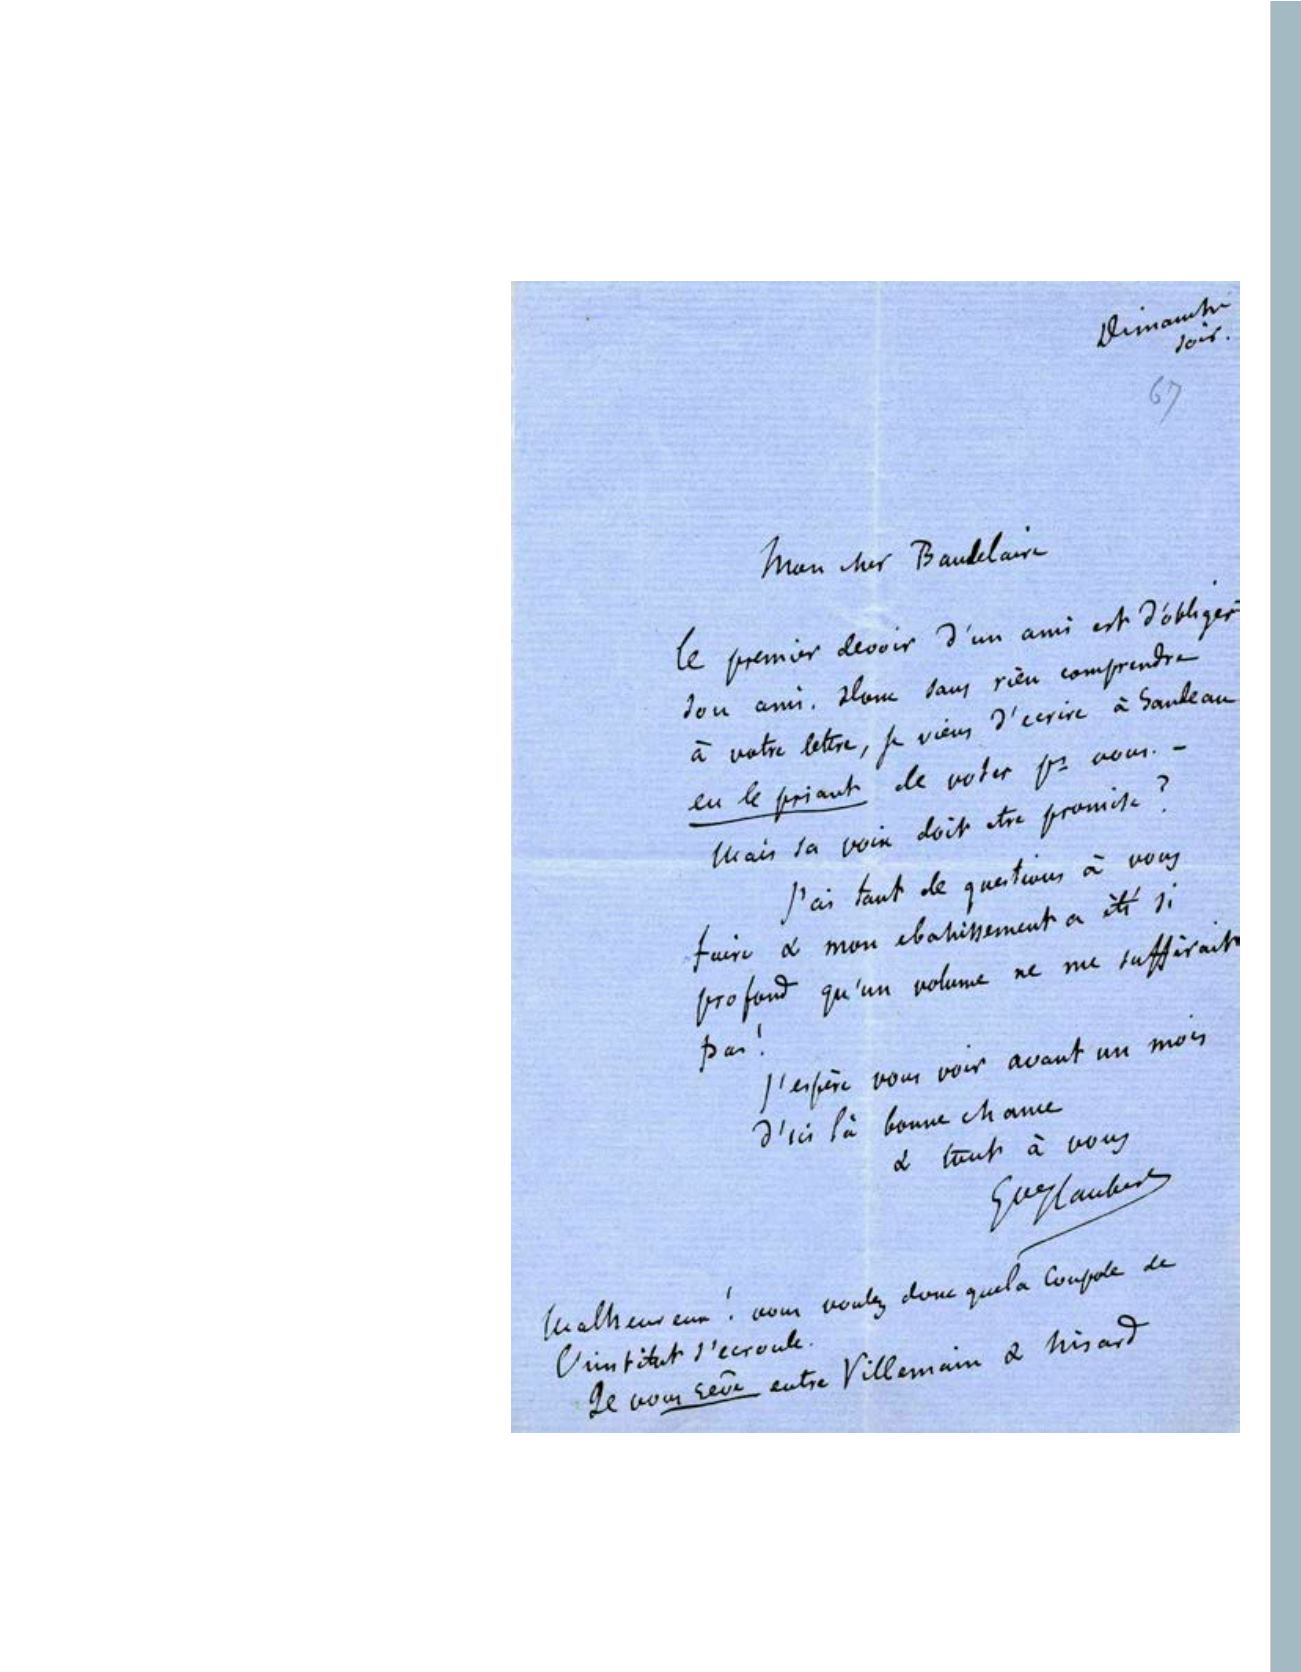 Dimanche
soir.
67
Mon cher Baudelaire
Le premier devoir d'un ami est d'obliger
son ami. Donc sans rien comprendre
à votre lettre, je viens d'ecrire à Sandeau
en le priant de voter pr vous. –
Mais sa voix doit etre promise ?
J'ai tant de questions à vous
faire & mon ebahissement a été si
profond qu'un volume ne me suffirait
pas !
J'espère vous voir avant un mois
d'ici là bonne chance
& tout à vous
Gve Flaubert
Malheureux ! vous voulez donc que la Coupole de
l'institut s'ecroule.
Je vous rêve entre Villemain & Nisard